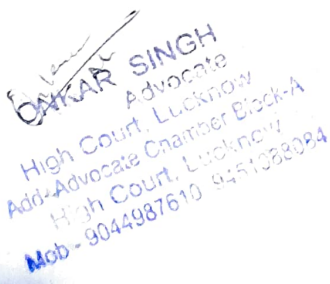 OMKAR SINGH
Advocate
High Court, Lucknow
Add-Advocate Chamber Block-A
High Court, Lucknow
Mob - 9044987610